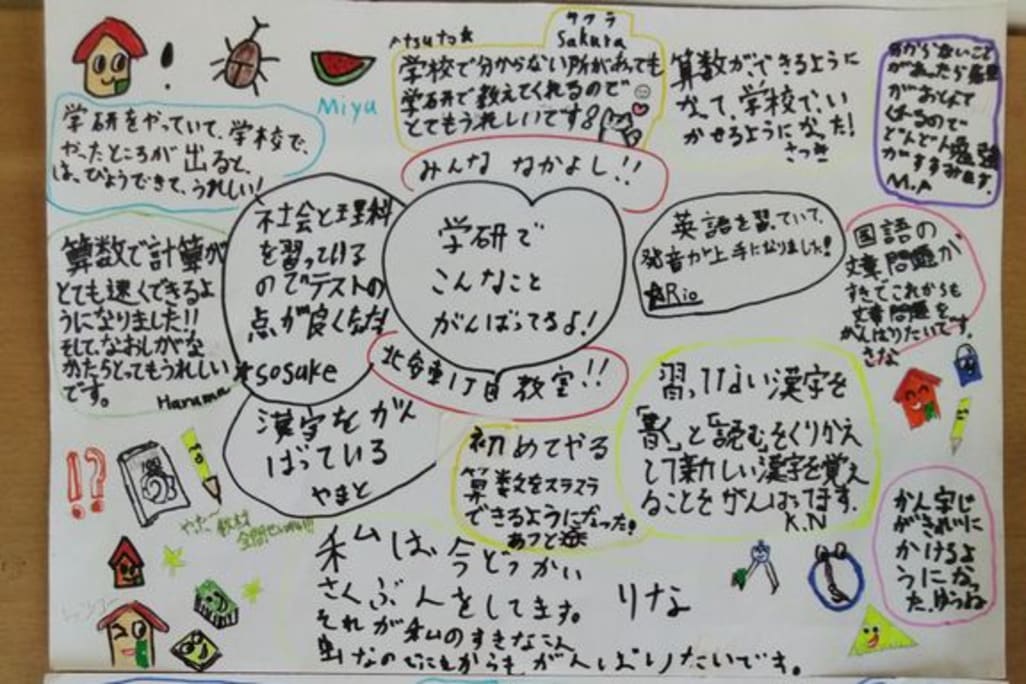 Miyu
学研をやっていて、学校で、
やったところが出ると、
は、ぴょうできて、うれしい!
Atsuto
サクラ
Sakura
学校で分からない所があっても
学研で教えてくれるので
とてもうれしいです
算数が、できるように
なって、学校で、い
かせるようになった!
さつき
分からないこと
があったら
がおしえて
くれるので
どんどん勉強
がすすみます。
M.A
みんな なかよし!!
算数で計算が
とても速くできるよ
うになりました!!
そして、なおしがな
かったらとってもうれしい
です。
Haruma
社会と理科
を習っている
のでテストの
点が良くなった
★sosuke
学研で
こんなこと
がんばってるよ!
英語を習っていて、
発音が上手になりました!
★Rio
国語の
文章問題が
すきでこれからも
文章問題を
がんばりたいです。
さな
北谷東1丁目教室!!
漢字をがん
ばっている
やまと
初めてやる
算数をスラスラ
できるようになった!
あつと
習ってない漢字を
「書く」と「読む」をくりかえ
して新しい漢字を覚え
ることをがんばってます。
K.N
かん字じ
がきれいに
かけるよ
うになっ
た。ゆうね
!?
やった 教材
私は今どっかい
さくぶんをしてます。 りな
それが私のすきなこん
出なのでこれからもがんばりたいです。